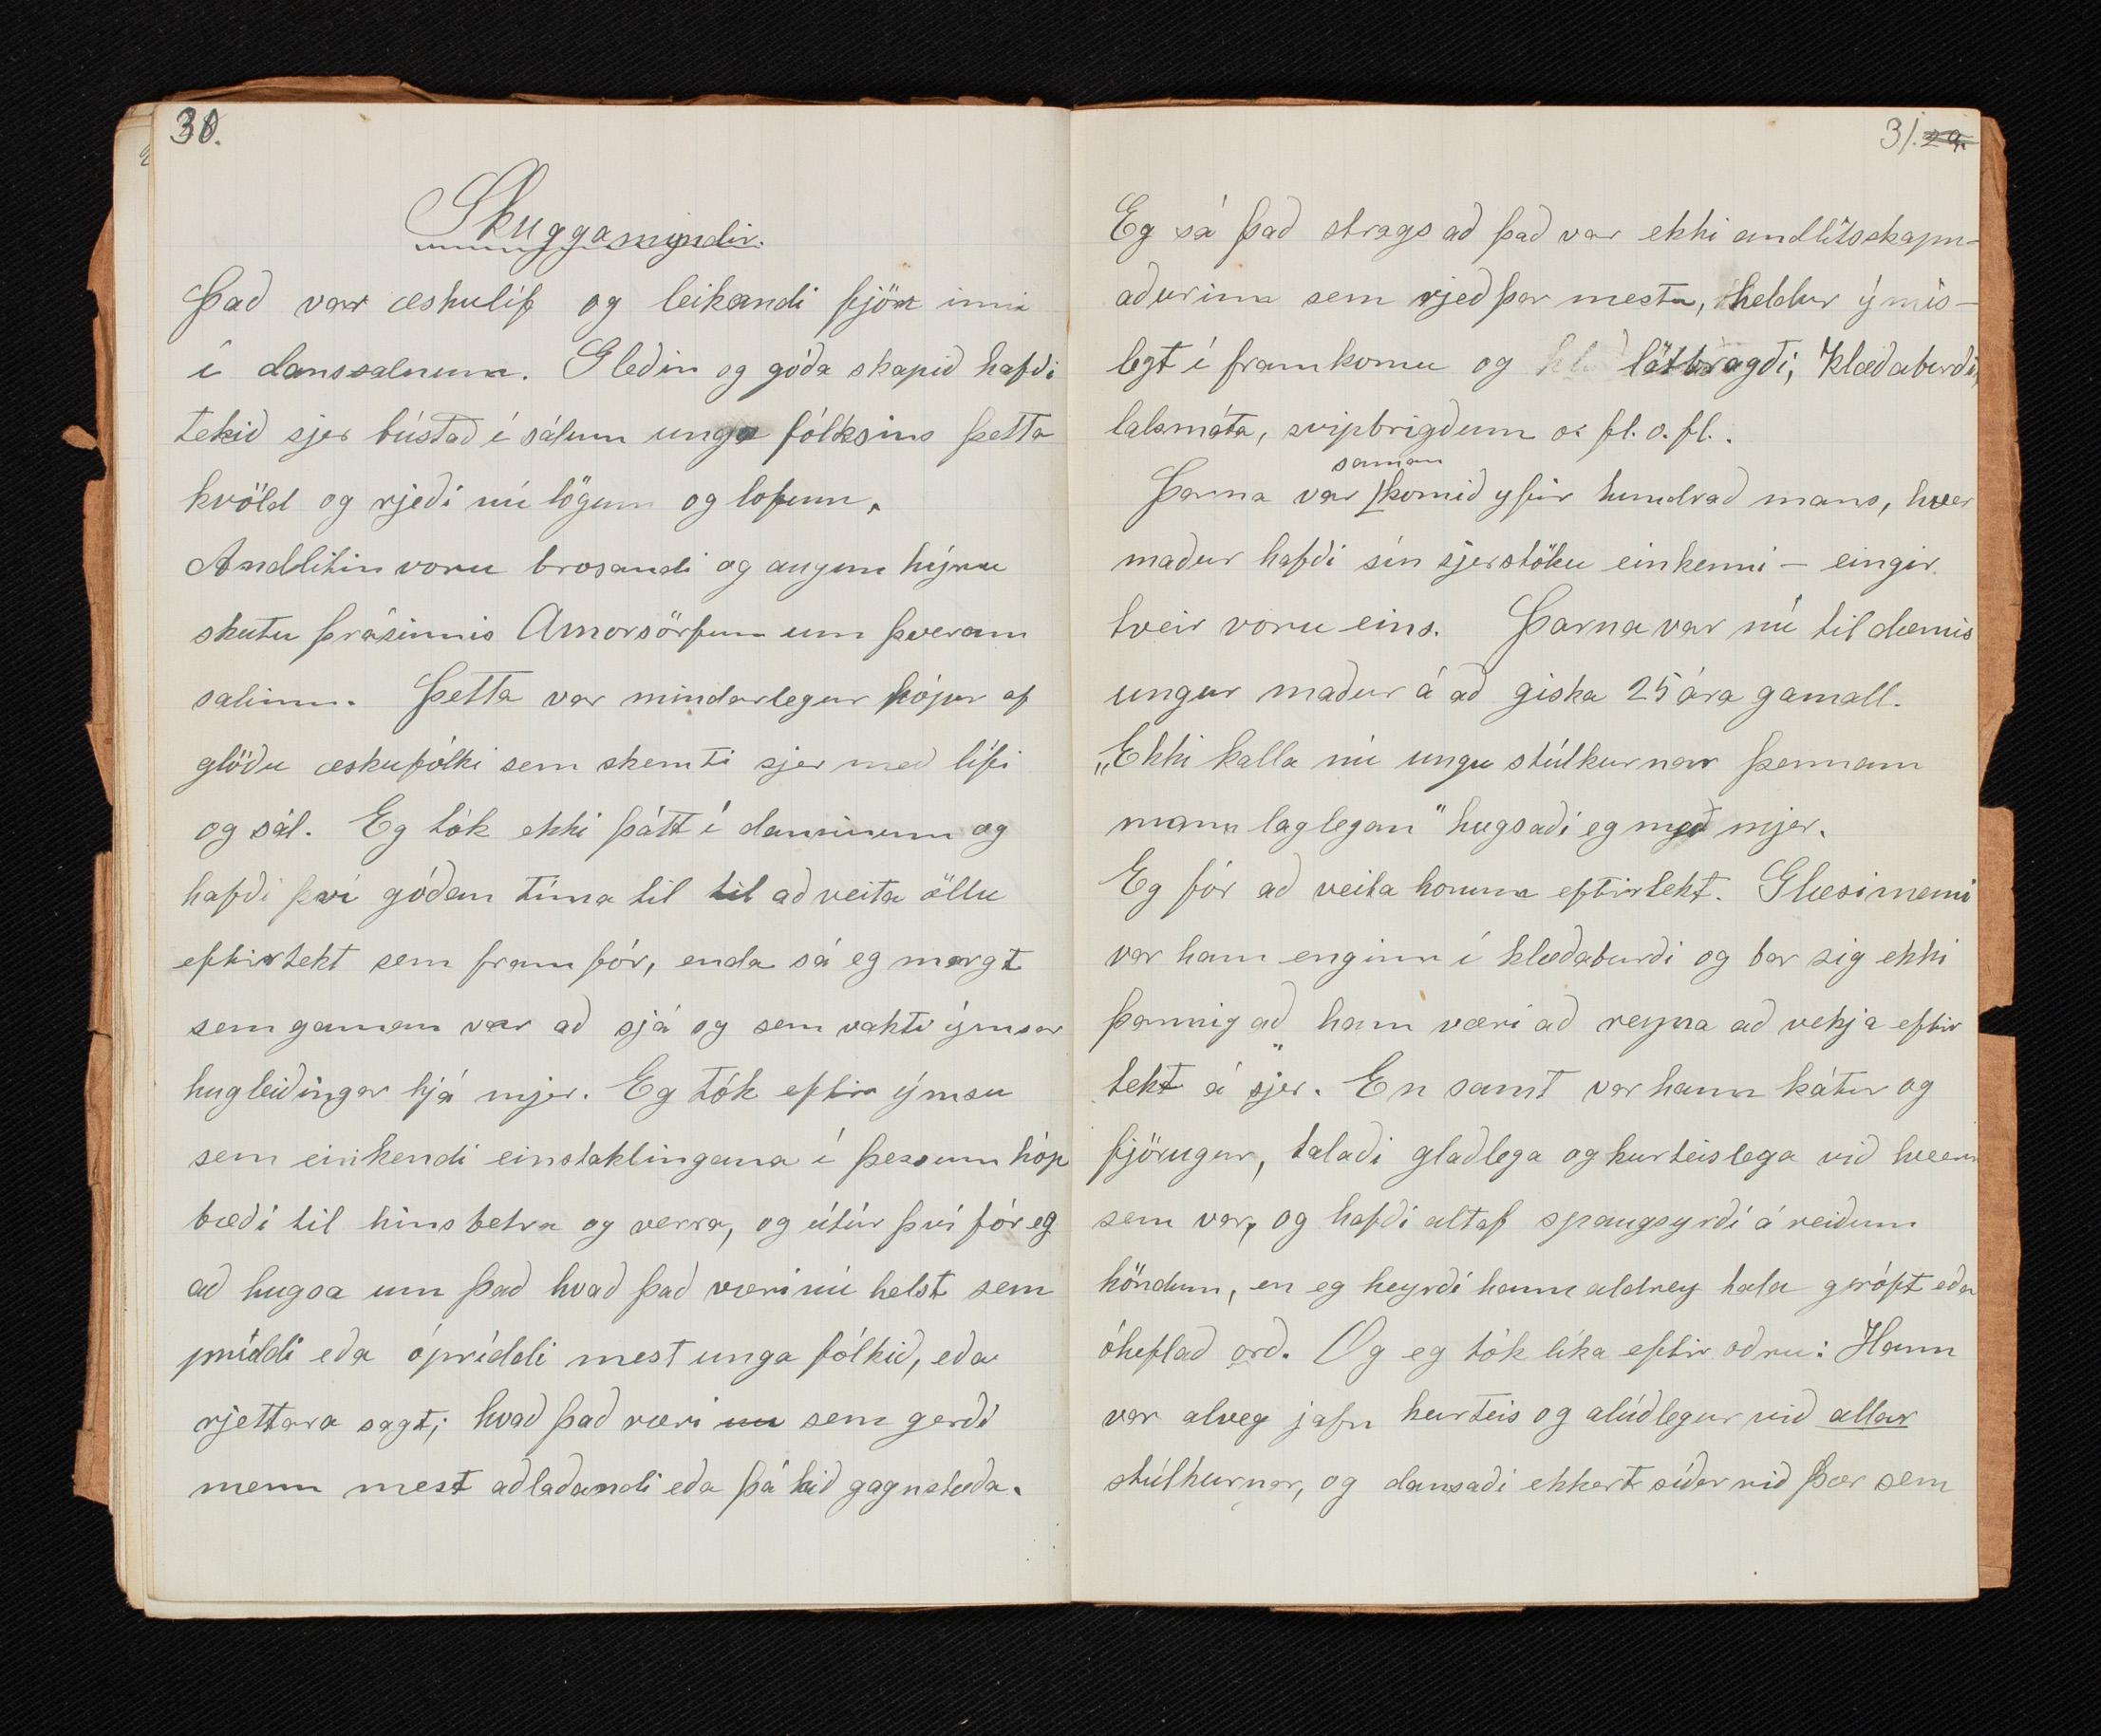 30.
Skuggamyndir.
Það var æskulíf og leikandi fjör inni
í danssalnum. Gleðin og góða skapið hafði
tekið sjer bústað í sálum unga fólksins þetta
kvöld og rjeði nú lögum og lofum.
Andlitin voru brosandi og augun hýru
skutu þrásinnis Amorsörfum um þveran
salinn. Þetta var mindarlegur hópur af
glöðu æskufólki sem skemti sjer með lífi
og sál. Eg tók ekki þátt í dansinum og
hafði því góðan tíma til til að veita öllu
eftirtekt sem fram fór, enda sá eg margt
sem gaman var að sjá og sem vakti ýmsar
hugleiðingar hjá mjer. Eg tók eftir ýmsu
sem einkendi einstaklingana í þessum hóp
bæði til hins betra og verra, og útúr því fór eg
að hugsa um það hvað það væri nú helst sem
príddi eða ópríddi mest unga fólkið, eða
rjettara sagt; hvað það væri nu sem gerði
menn mest aðlaðandi eða þá hið gagnstæða.
31. 29.
Eg sá það strags að það var ekki andlitsskapn-
aðurinn sem rjeð þar mestu, heldur ýmis-
legt í framkomu og látbragði, klæðaburði,
talsmáta, svipbrigðum o. fl. o. fl..
saman
Þarna var komið yfir hundrað mans, hver
maður hafði sín sjerstöku einkenni – eingir
tveir voru eins. Þarna var nú til dæmis
ungur maður á að giska 25 ára gamall.
„Ekki kalla nú ungu stúlkurnar þennan
mann laglegan" hugsaði eg með mjer.
Eg fór að veita honum eftirtekt. Glæsimenni
var hann enginn í klæðaburði og bar sig ekki
þannig að hann væri að reyna að vekja eftir
tekt á sjer. En samt var hann kátur og
fjörugur, talaði glaðlega og kurteislega við hvern
sem var, og hafði altaf spaugsyrði á reiðum
höndum, en eg heyrði hann aldrey tala gróft eða
óheflað orð. Og eg tók líka eftir oðru: Hann
var alveg jafn kurteis og alúðlegur við allar
stúlkurnar, og dansaði ekkert síður við þær sem